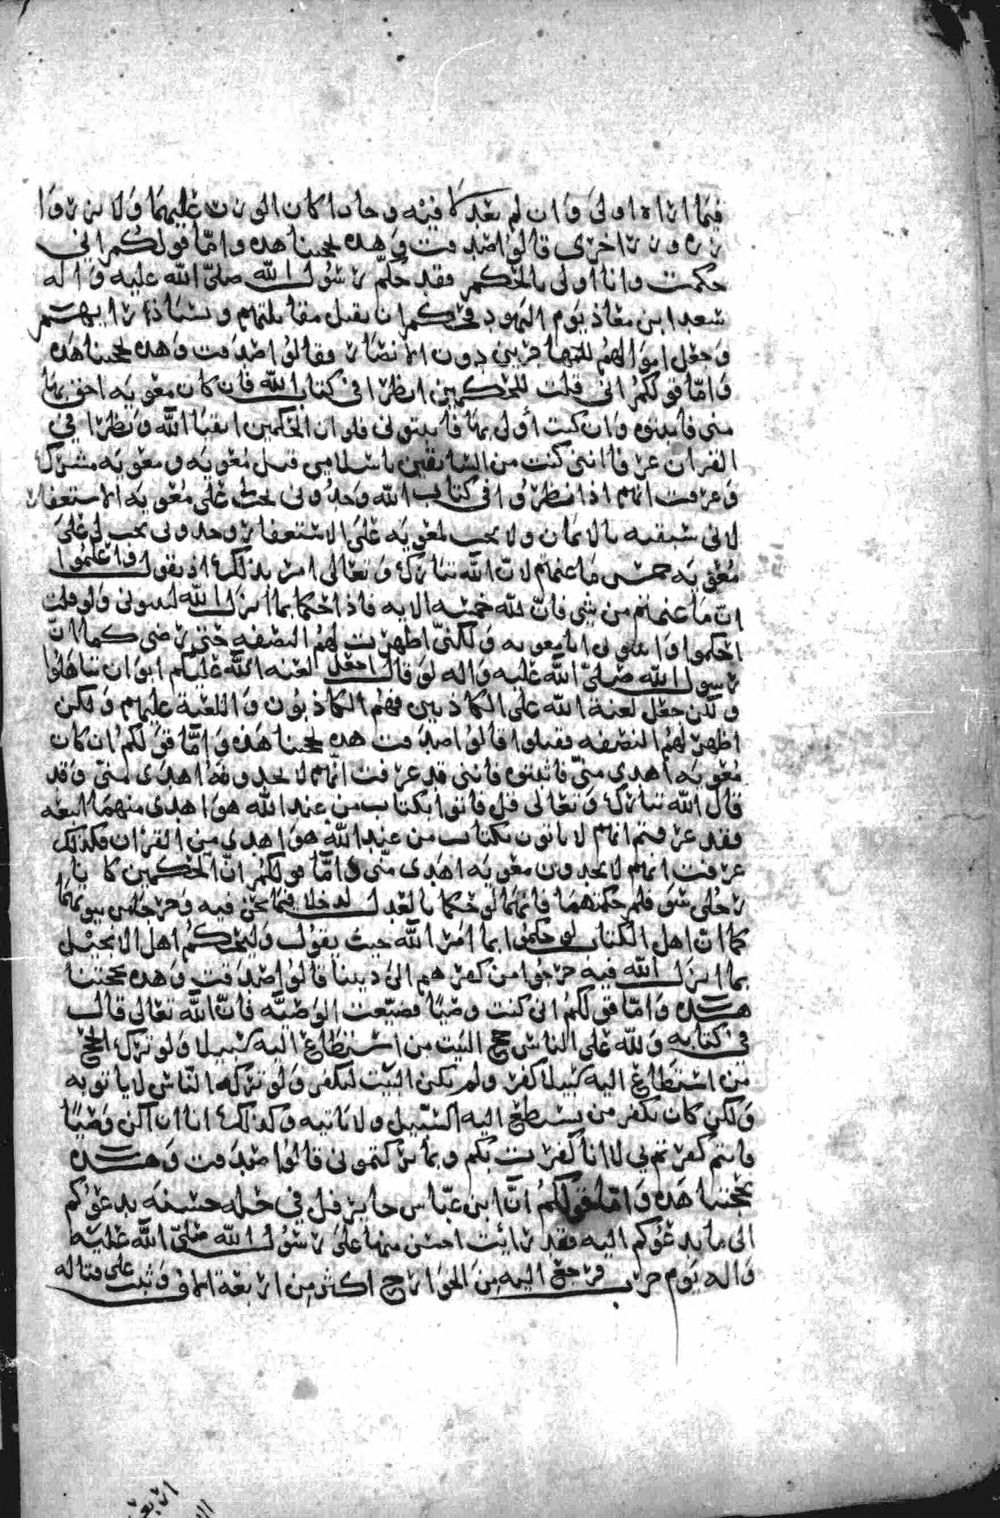 فيما اراه اولى وان لم يعدكا فيه وحادا كان الوزر عليهما ولا تزر وا
زره وزر اخرى قالوا صدقت وهذه بحجتنا هذه واما قولكم اني
حكمت وانا اولى بالحكم فقد حكم رسول الله صلى الله عليه واله
سعد ابن معاذ يوم اليهود فحكم ان يقتل مقاتلتهم وتسبا ذراريهم
وجعل اموالهم للمهاجرين دون الانصار فقالوا صدقت وهذه بحجتنا هذه
واما قولكم اني قلت للحكمين انظرا في كتاب الله فان كان معويه احق بها
مني فاثبتوه وان كنت أولى بها فاثبتوني فلو ان الحكمين اتقيا الله ونظرا في
القران عرفا انني كنت من السابقين باسلامي قبل معويه ومعويه مشرك
وعرفت انهم اذا نظروا في كتاب الله وجدوني يجب على معويه الاستغفار
لاني سبقته بالايمان ولا يجب لمعويه على الاستغفار وجدوني يجب لي على
معويه خمس ما غنمتم لان الله تبارك وتعالى امر بذلك اذ يقول واعلموا
ان ما غنمتم من شي فان لله خمسه الايه فاذا حكما بما انزل الله اثبتوني ولو قلت
احكموا وا لي ابا معويه ولكني اظهرت لهم النصفه حتى رضي كما ان
رسول الله صلى الله عليه واله لو قال اجعل لعنة الله عليكم ابوا ان تباهلوا
ولكن جعل لعنة الله على الكاذبين فهم الكاذبون واللعنة عليهم ولكن
اظهر لهم النصفه فقبلوا قالوا صدقت هذه بحجتنا هذه واما قولكم ان كان
معويه اهدى مني فاثبتوه فانني قد عرفت انهم لا يجدونه اهدى مني وقد
قال الله تبارك وتعالى قل فاتوا بكتاب من عند الله هو اهدى منهما اتبعه
فقد عرفتم انهم لا ياتون بكتاب من عند الله هو اهدى من القران فكذلك
عرفت انهم لا يجدون معويه اهدى مني واما قولكم ان الحكمين كانا
رجلي سو فلم حكمتهما فانهما لو حكما بالعدل لدخلا فيما نحن فيه وخرجا من سوتهما
كما ان اهل الكتاب لو حكموا بما امر الله حيث يقول وليحكم اهل الانجيل
بما انزل الله فيه خرجوا من كفرهم الى ديننا قالوا صدقت وهذه بحجتنا
هذه واما قولكم اني كنت وصيا فضيعت الوصيه فان الله تعالى قال
في كتابه ولله على الناس حج البيت من استطاع اليه سبيلا ولو ترك الحج
من استطاع اليه سبيلا كفر ولم يكن البيت ليكفر ولو تركه الناس لا ياتونه
ولكن كان يكفر من يستطع اليه السبيل ولا ياتيه وكذلك انا ان اكن وصيا
فانتم كفرتم بي لا انا كفرت بكم وبما تركتموني قالوا صدقت وهذه
بحجتنا هذه واما قولكم ان ابن عباس جا يرفل في حله حسنه يدعوكم
الى ما يدعوكم اليه فقد رائيت احسن منها على رسول الله صلى الله عليه
واله يوم حرب فرجع اليه من الخوارج اكثر من اربعة الاف وثبت على قتاله